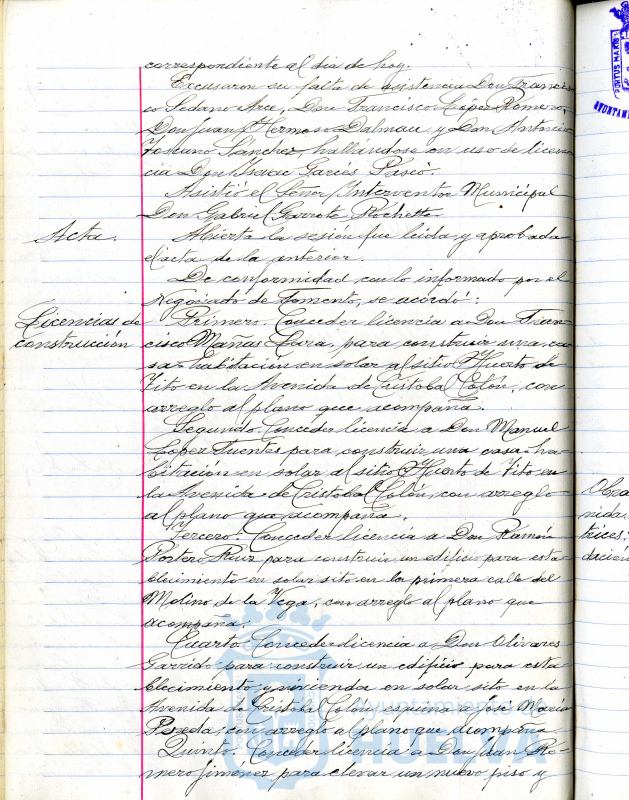 correspondiente al dia de hoy.
Excusaron su falta de asistencia Don Francis-
co Sedano Arce, Don Francisco López Romero,
Don Juan Hermoso Dalmau y Don Antonio
Toscano Sánchez, hallándose en uso de licen-
cia Don Isaac Garcés Pasió.
Asistió el Señor Interventor Municipal
Don Gabriel Garrote Rochette.
Acta.
Abierta la sesión fue leida y aprobada
el acta de la anterior.
De conformidad con lo informado por el
Negociado de Fomento, se acordó:
Licencias de
construcción
Primero. Conceder licencia a Don Fran-
cisco Mañas Jara, para construir una ca-
sa-habitación en solar al sitio Huerto de
Tito en la Avenida de Cristobal Colón, con
arreglo al plano que acompaña.
Segundo. Conceder licencia a Don Manuel
Lopez Fuentes para construir una casa-ha-
bitación en solar al sitio Huerto de Tito, en
la Avenida de Cristobal Colón, con arreglo
al plano que acompaña.
Tercero: Conceder licencia a Don Ramón
Portero Ruiz para construir un edificio para esta-
blecimiento en solar sito en la primera calle del
Molino de la Vega, con arreglo al plano que
acompaña.
Cuarto. Conceder licencia a Don Olivares
Garrido para construir un edificio para esta-
blecimiento y vivienda en solar sito en la
Avenida de Cristobal Colón esquina a José Maria
Pereda, con arreglo al plano que acompaña.
Quinto. Conceder licencia a Don Juan Ro-
mero Jimenez para elevar un nuevo piso y
Ayuntamiento
HUELVA
PORTUS MARIS
AYUNTAM